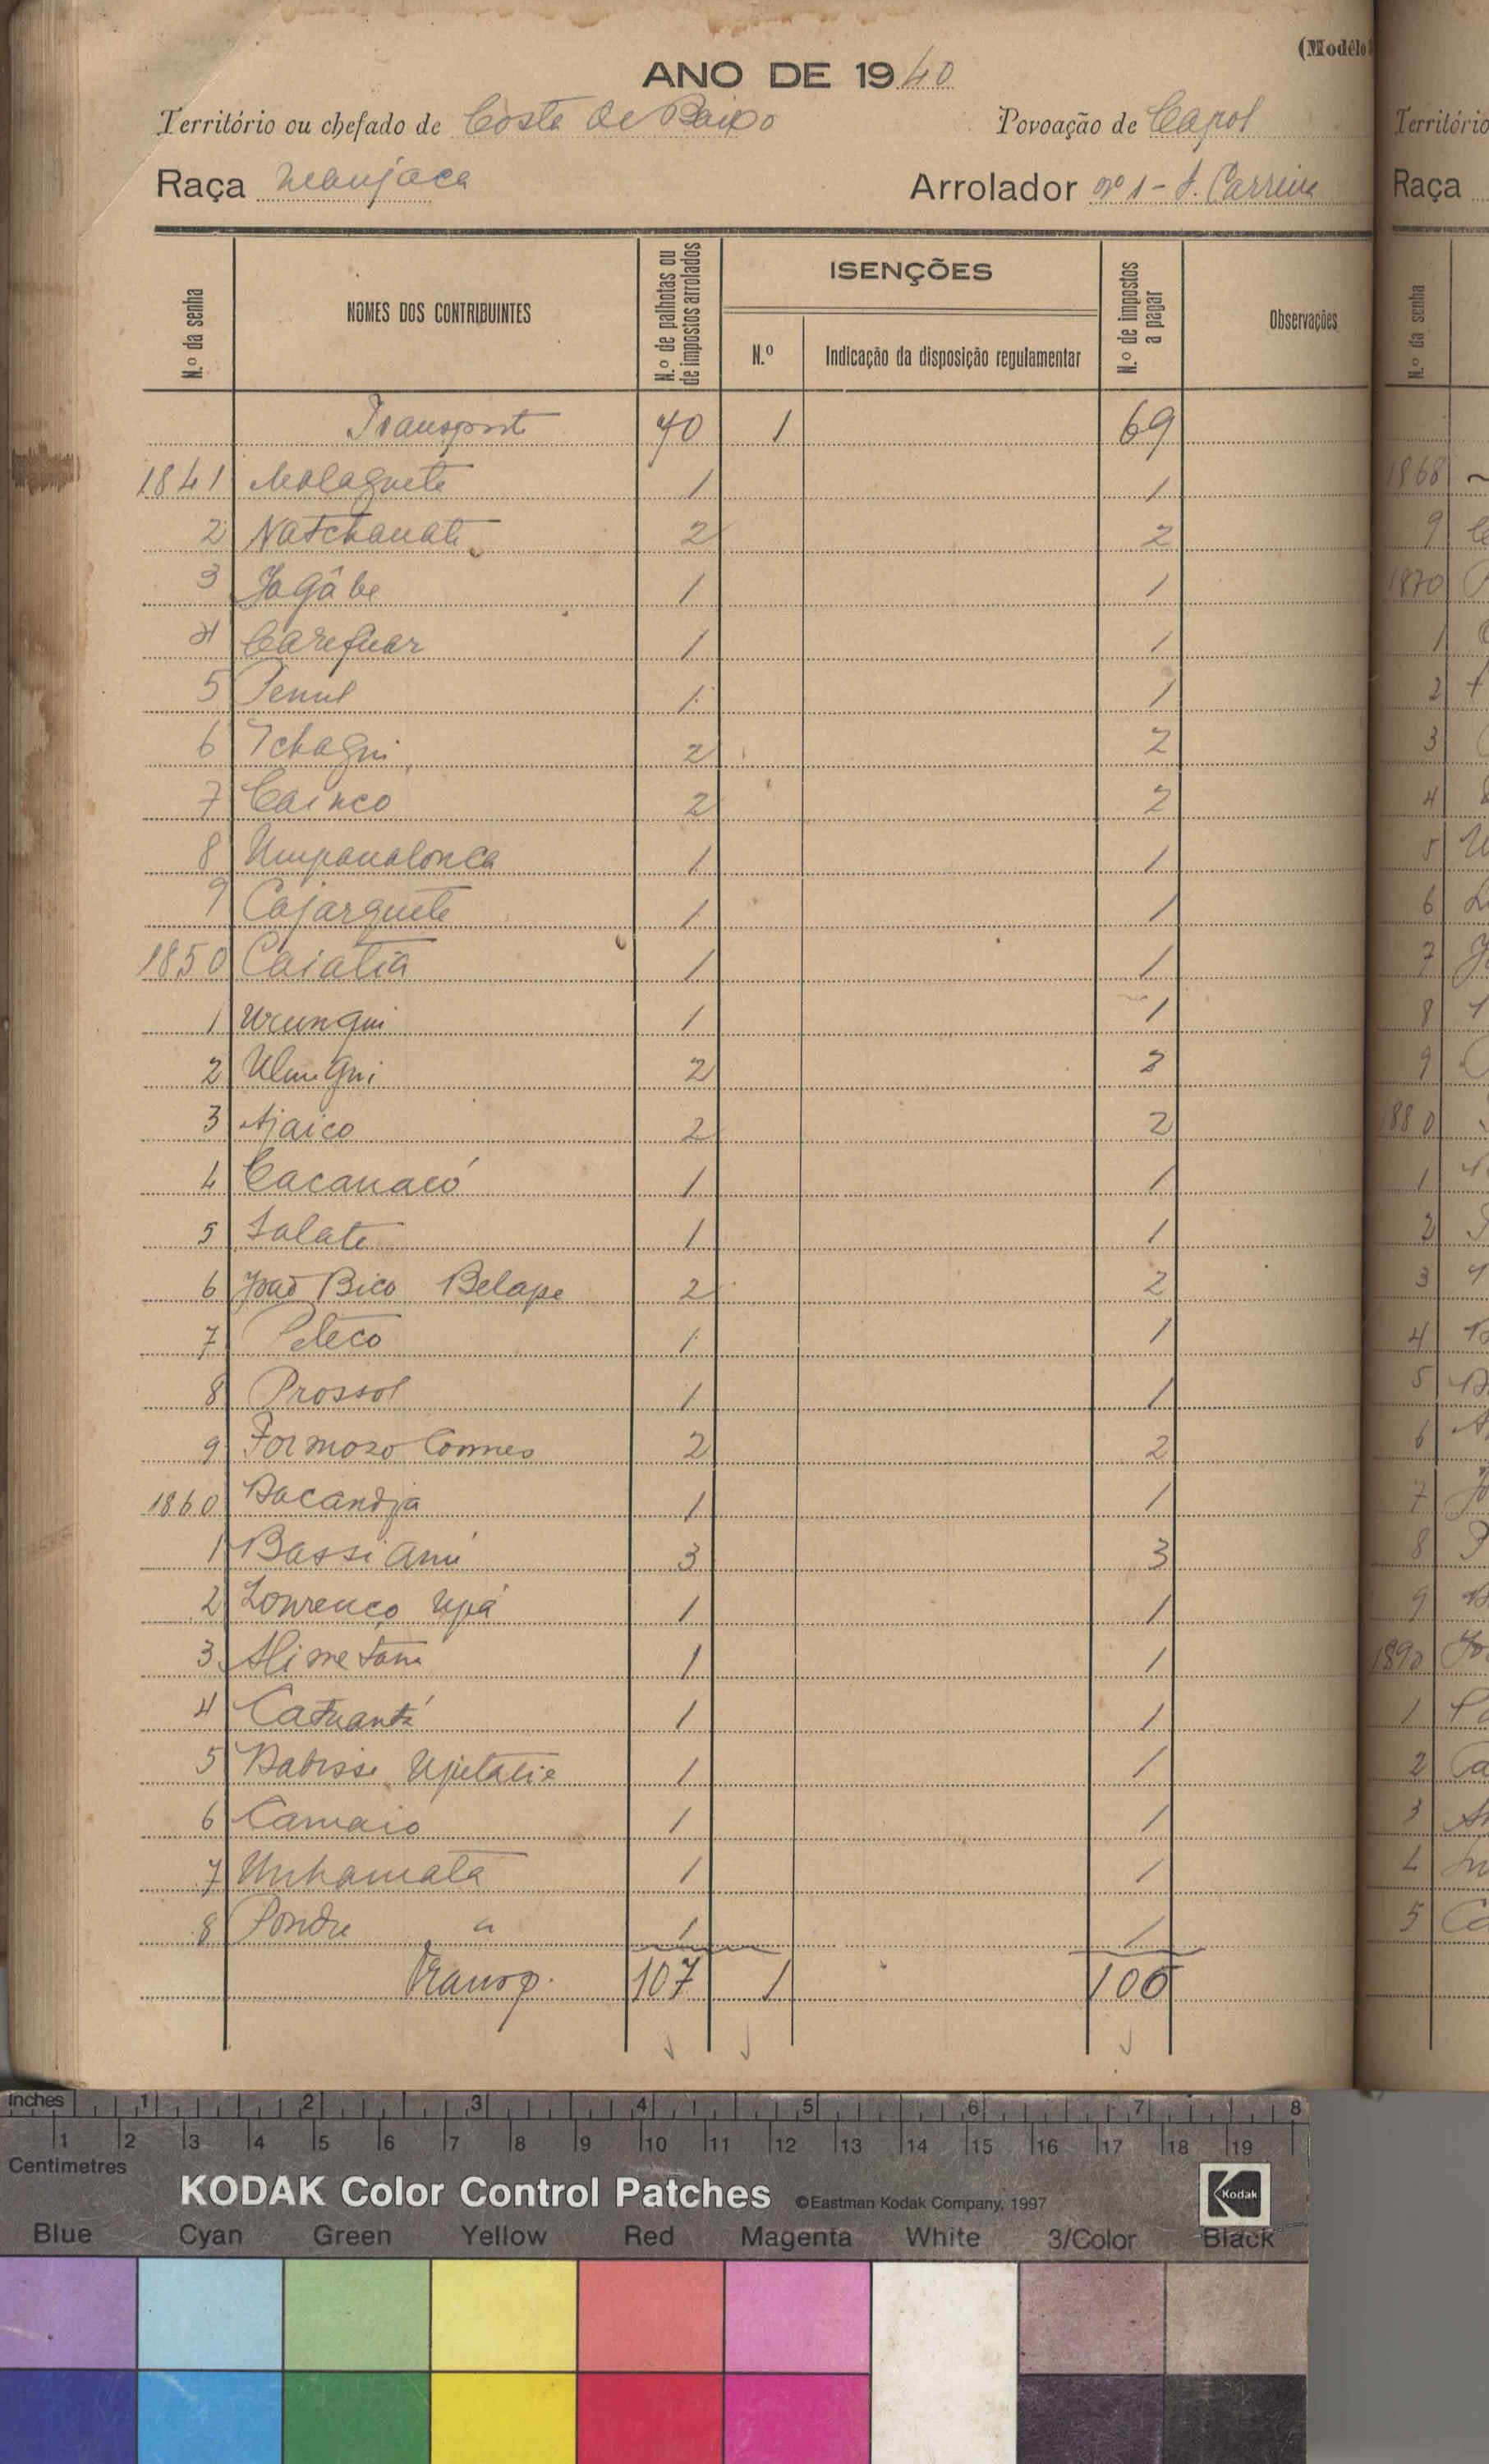 (Modêlo
ANO DE 1940
Território ou chefado de Costa de Baixo Povoação de Capol
Raça Manjaca Arrolador nº 1 - A. Carreira
N.º da senha
NOMES DOS CONTRIBUINTES
N.º de palhotas ou de impostos arrolados
ISENÇÕES
N.º
Indicação da disposição regulamentar
N.º de impostos a pagar
Observações
Transport 70 1 69
1841 Malaguete 1 1
2 Natchanate 2 2
3 Jagâbe 1 1
4 Carefuar 1 1
5 Penul 1 1
6 Tchagui 2 2
7 Cainco 2 2
8 Umpanalonca 1 1
9 Cajarguete 1 1
1850 Caiatia 1 1
1 Urungui 1 1
2 2 2
3 Ajaico 2 2
4 Cacanacó 1 1
5 Salate 1 1
6 João Bico Belape 2 2
7 Peteco 1 1
8 Prossol 1 1
9 Formozo Gomes 2 2
1860 Bacandja 1 1
1 Bassi 3 3
2 Lourenço Upá 1 1
3 1 1
4 Catuante 1 1
5 Batissi 1 1
6 Camaio 1 1
7 Unhamata 1 1
8 Pondre " 1 1
Transp. 107 1 106
Território
Raça
N.º da senha
1868
9
1870
1
2
3
4
5
6
7
8
9
880
1
2
3
4
5
6
7
8
9
1890
1
2
3
4
5
Inches 1 2 3 4 5 6 7 8
1 2 3 4 5 6 7 8 9 10 11 12 13 14 15 16 17 18 19
Centimetres
KODAK Color Control Patches ©Eastman Kodak Company, 1997 Kodak
Blue Cyan Green Yellow Red Magenta White 3/Color Black